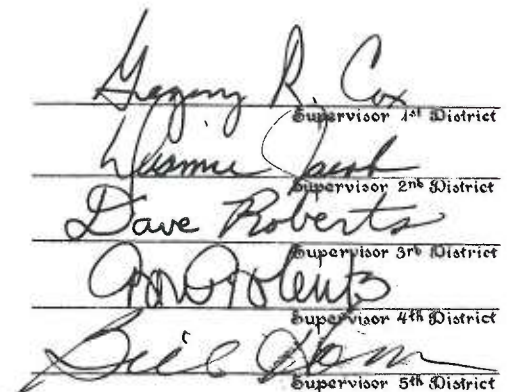 Gregory R. Cox
Supervisor 1st District
Dianne Jacob
Supervisor 2nd District
Dave Roberts
Supervisor 3rd District
Ron Roberts
Supervisor 4th District
Bill Horn
Supervisor 5th District